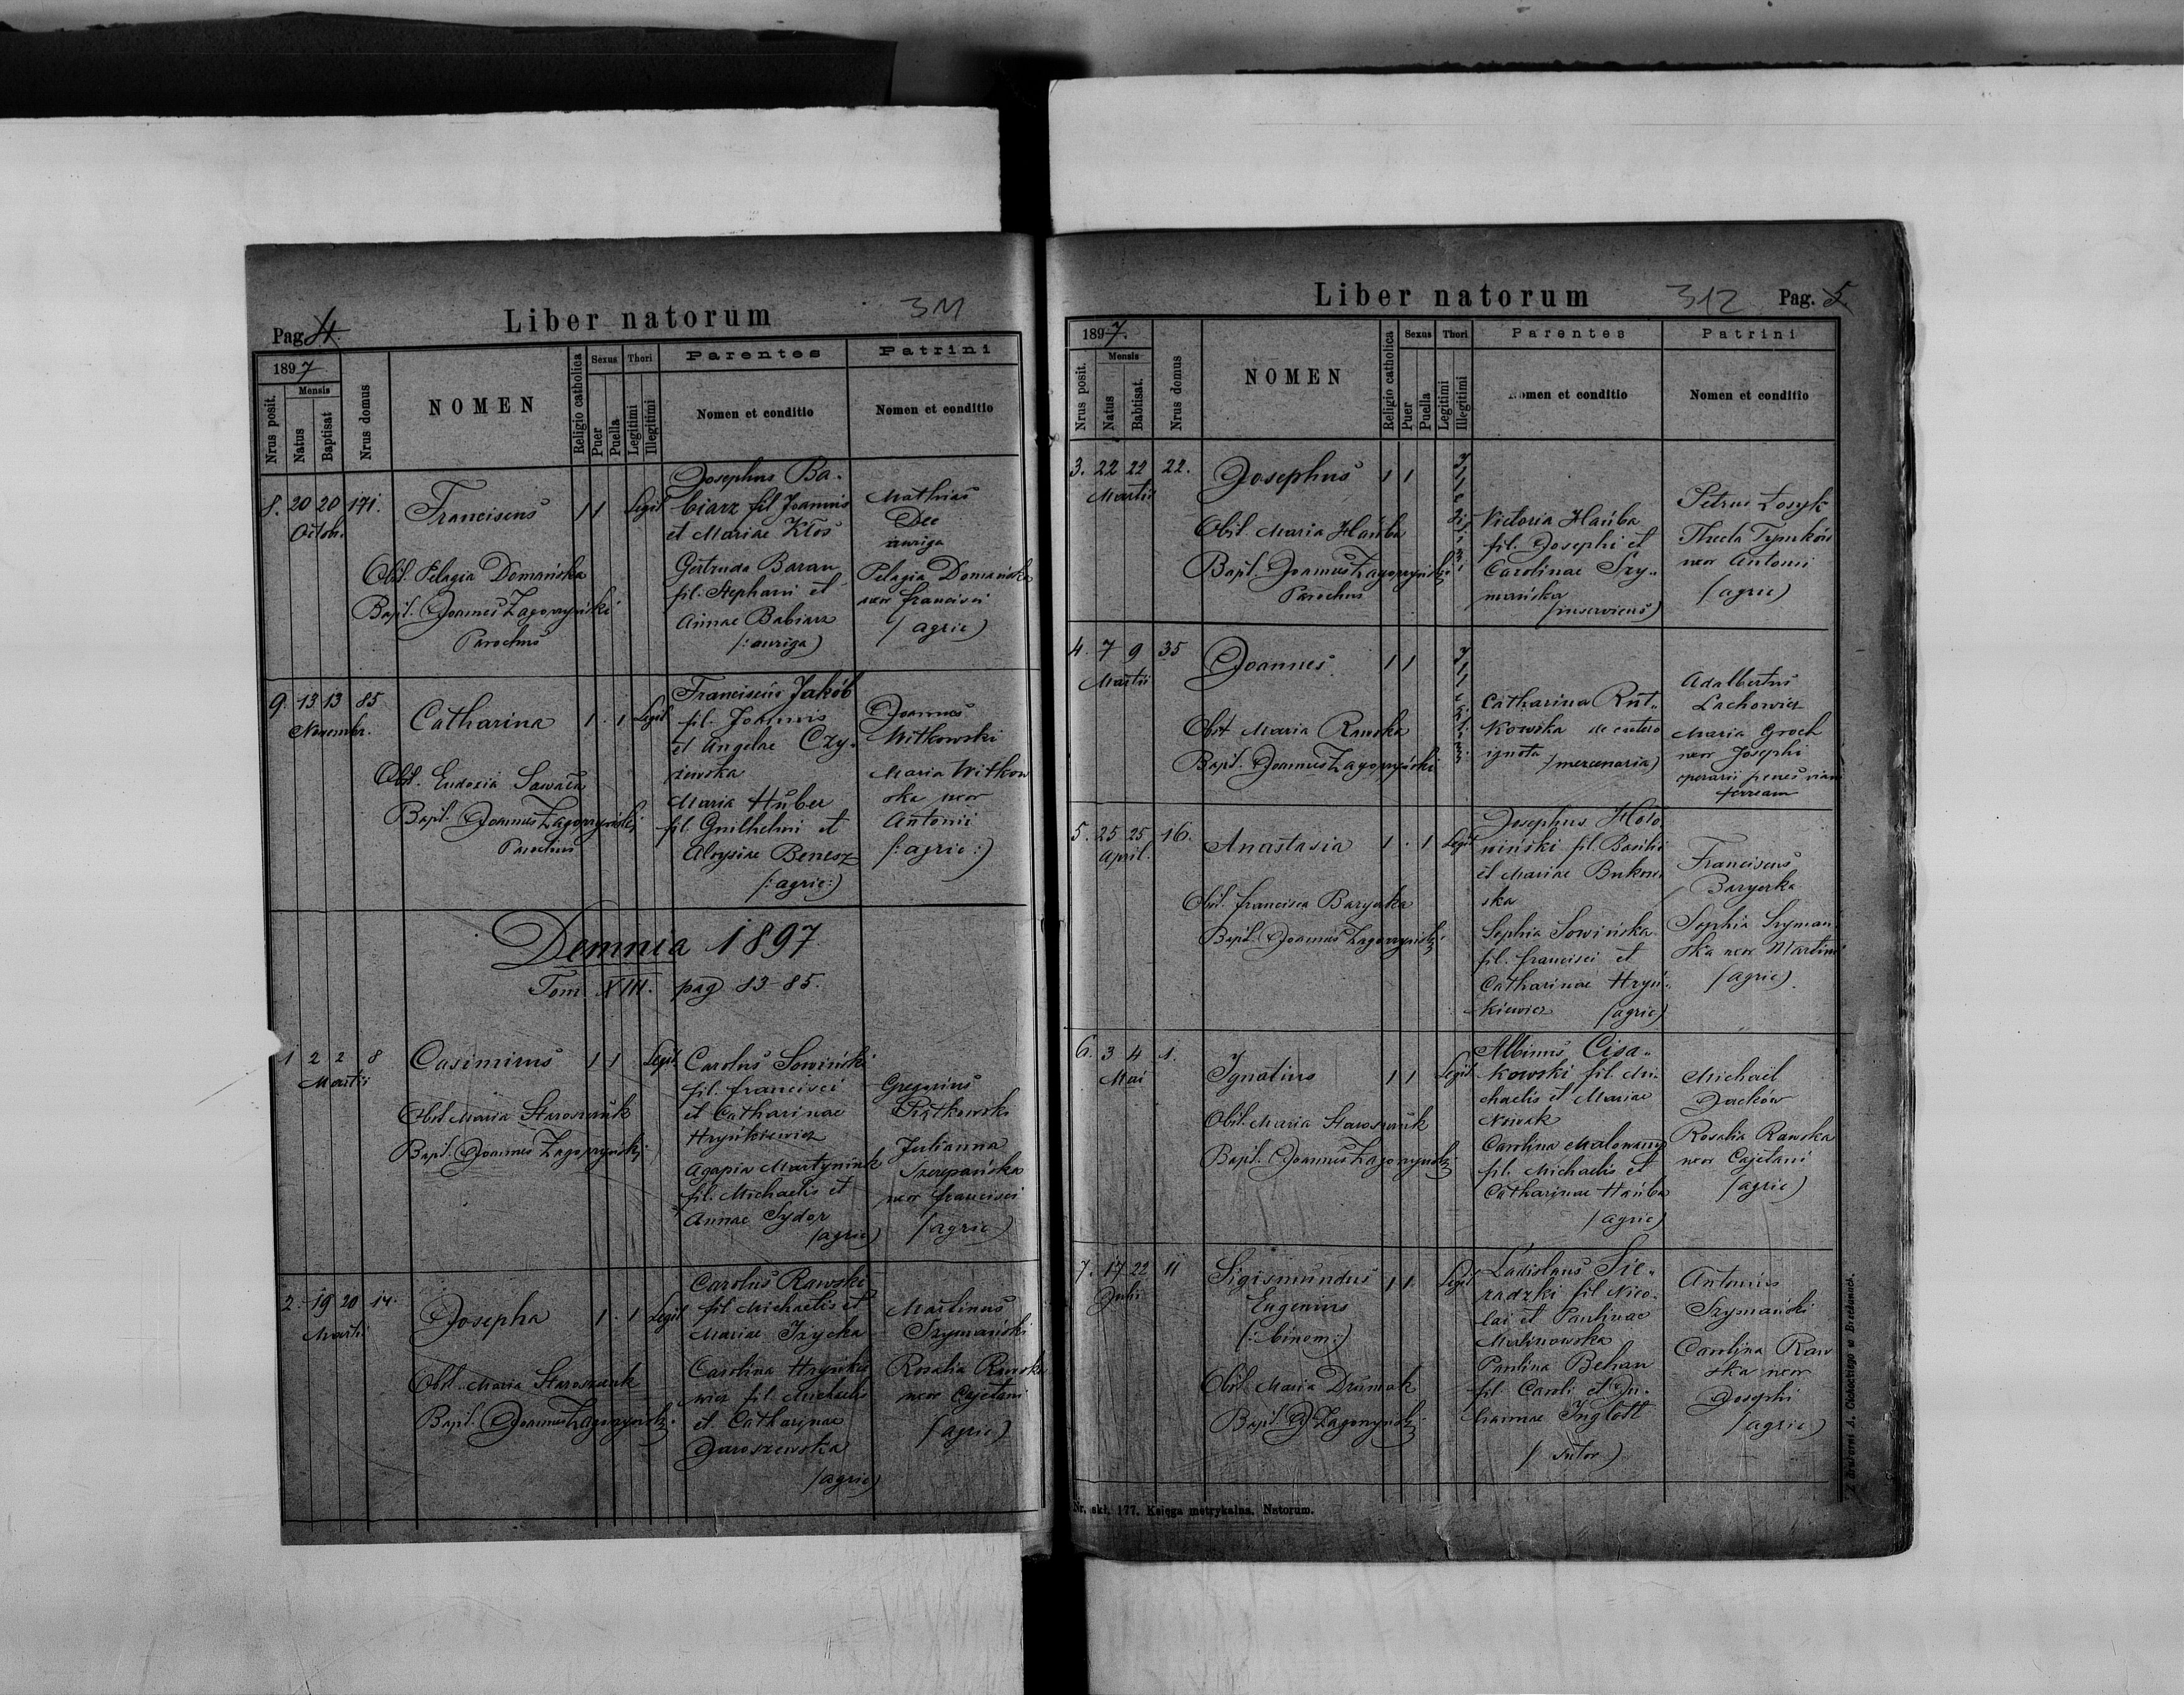 Pag. 4.
Liber natorum
311
1897
Nrus posit.
Mensis
Natus
Baptisat
Nrus domus
NOMEN
Religio catholica
Sexus
Puer
Puella
Thori
Legitimi
Illegitimi
Parentes
Nomen et conditio
Patrini
Nomen et conditio
8. 20 20 171.
Octob.
Franciscus
1 1 Legit
Obst. Pelagia Domańska
Bapt. Joannes Zagorzyński
Parochus
Josephus Ba-
biarz fil Joannis
et Mariae Kłos
Gertruda Baran
fil. Stephani et
Annae Babiarz
(: auriga)
Mathias
Dec
auriga
Pelagia Domańska
uxor Francisci
(agric)
9. 13 13 85
Novembr.
Catharina
1 . 1 Legit
Obst. Eudoxia
Bapt. Joannes Zagorzyński
Parochus
Franciscus Jakób
fil. Joannis
et Angelae Czy-
żewska
Maria Huber
fil. Guilhelmi et
Aloysiae Benesz
(: agric:)
Joannes
Witkowski
Maria Witkow
ska uxor
Antonii
(: agric :)
Demnia 1897
Tom. XIII. pag 83-85.
1 2 2 8
Martii
Casimirus
1 1 Legit.
Obst Maria Staroszczuk
Bapt. Joannes Zagorzyński
Carolus Sowiński
fil. Francisci
et Catharinae
Hryńkiewicz
Agapia Martyniuk
fil. Michaelis et
Annae Sydor
(agric)
Gregorius
Piątkowski
Julianna
Szczepańska
uxor Francisci
(agric)
2. 19 20 14.
Martii
Josepha
1 . 1 Legit
Obst. Maria Staroszczuk
Bapt. Joannes Zagorzyński
Carolus Rawski
fil Michaelis et
Mariae Iżycka
Carolina Hryńkie
wicz fil. Michaelis
et Catharinae
Jaroszewska
(agric)
Martinus
Szymański
Rosalia Rawska
uxor Cajetani
(agric)
Liber natorum
312
Pag. 5.
1897.
Nrus posit.
Mensis
Natus
Babtisat.
Nrus domus
NOMEN
Religio catholica
Sexus
Puer
Puella
Thori
Legitimi
Illegitimi
Parentes
Nomen et conditio
Patrini
Nomen et conditio
3. 22 22 22.
Martii
Josephus
1 1
Illegitimi
Obst. Maria Hańba
Bapt. Joannes Zagorzyński
Parochus
Victoria Hańba
fil. Josephi et
Carolinae Szy-
mańska
(inserviens)
Petrus Łosyk
Thecla Tymków
uxor Antonii
(agric)
4. 7 9 35
Martii
Joannes
1 1
Illegitimi
Obst Maria Rawska
Bapt. Joannes Zagorzyński
Catharina Rut-
kowska de cetero
ignota (mercenaria)
Adalbertus
Lachowicz
Maria Groch
uxor Josephi
operarii penes viam
ferream
5. 25 25 16.
April.
Anastasia
1 . 1 Legit
Obst. Francisca Barycka
Bapt. Joannes Zagorzyński
Josephus Hoło
wiński fil. Basilii
et Mariae Bukow
ska
Sophia Sowińska
fil. Francisci et
Catharinae Hryń-
kiewicz (agric)
Franciscus
Sophia Szymań
ska uxor Martini
(agric).
6. 3 4 1.
Mai
Ignatius
1 1 Legit
Obst. Maria Staroszczuk
Bapt. Joannes Zagorzyński
Albinus Cisa-
kowski fil. Mi-
chaelis et Mariae
Nowak
Carolina Malowany
fil. Michaelis et
Catharinae Hańba
(agric)
Michael
Jacków
Rosalia Rawska
uxor Cajetani
(agric)
7. 17 22 11
Julii
Sigismundus
Eugenius
(: binom :)
1 1 Legit
Obst. Maria Drumak
Bapt. J Zagorzyński
Ladislaus Sie-
radzki fil Nico-
lai et Paulinae
Malinowska
Paulina Behan
fil. Caroli et Ju-
liannae Inglott
(sutor)
Antonius
Szymański
Carolina Raw
ska uxor
Josephi
(agric)
Nr. skł. 177. Księga metrykalna. Natorum.